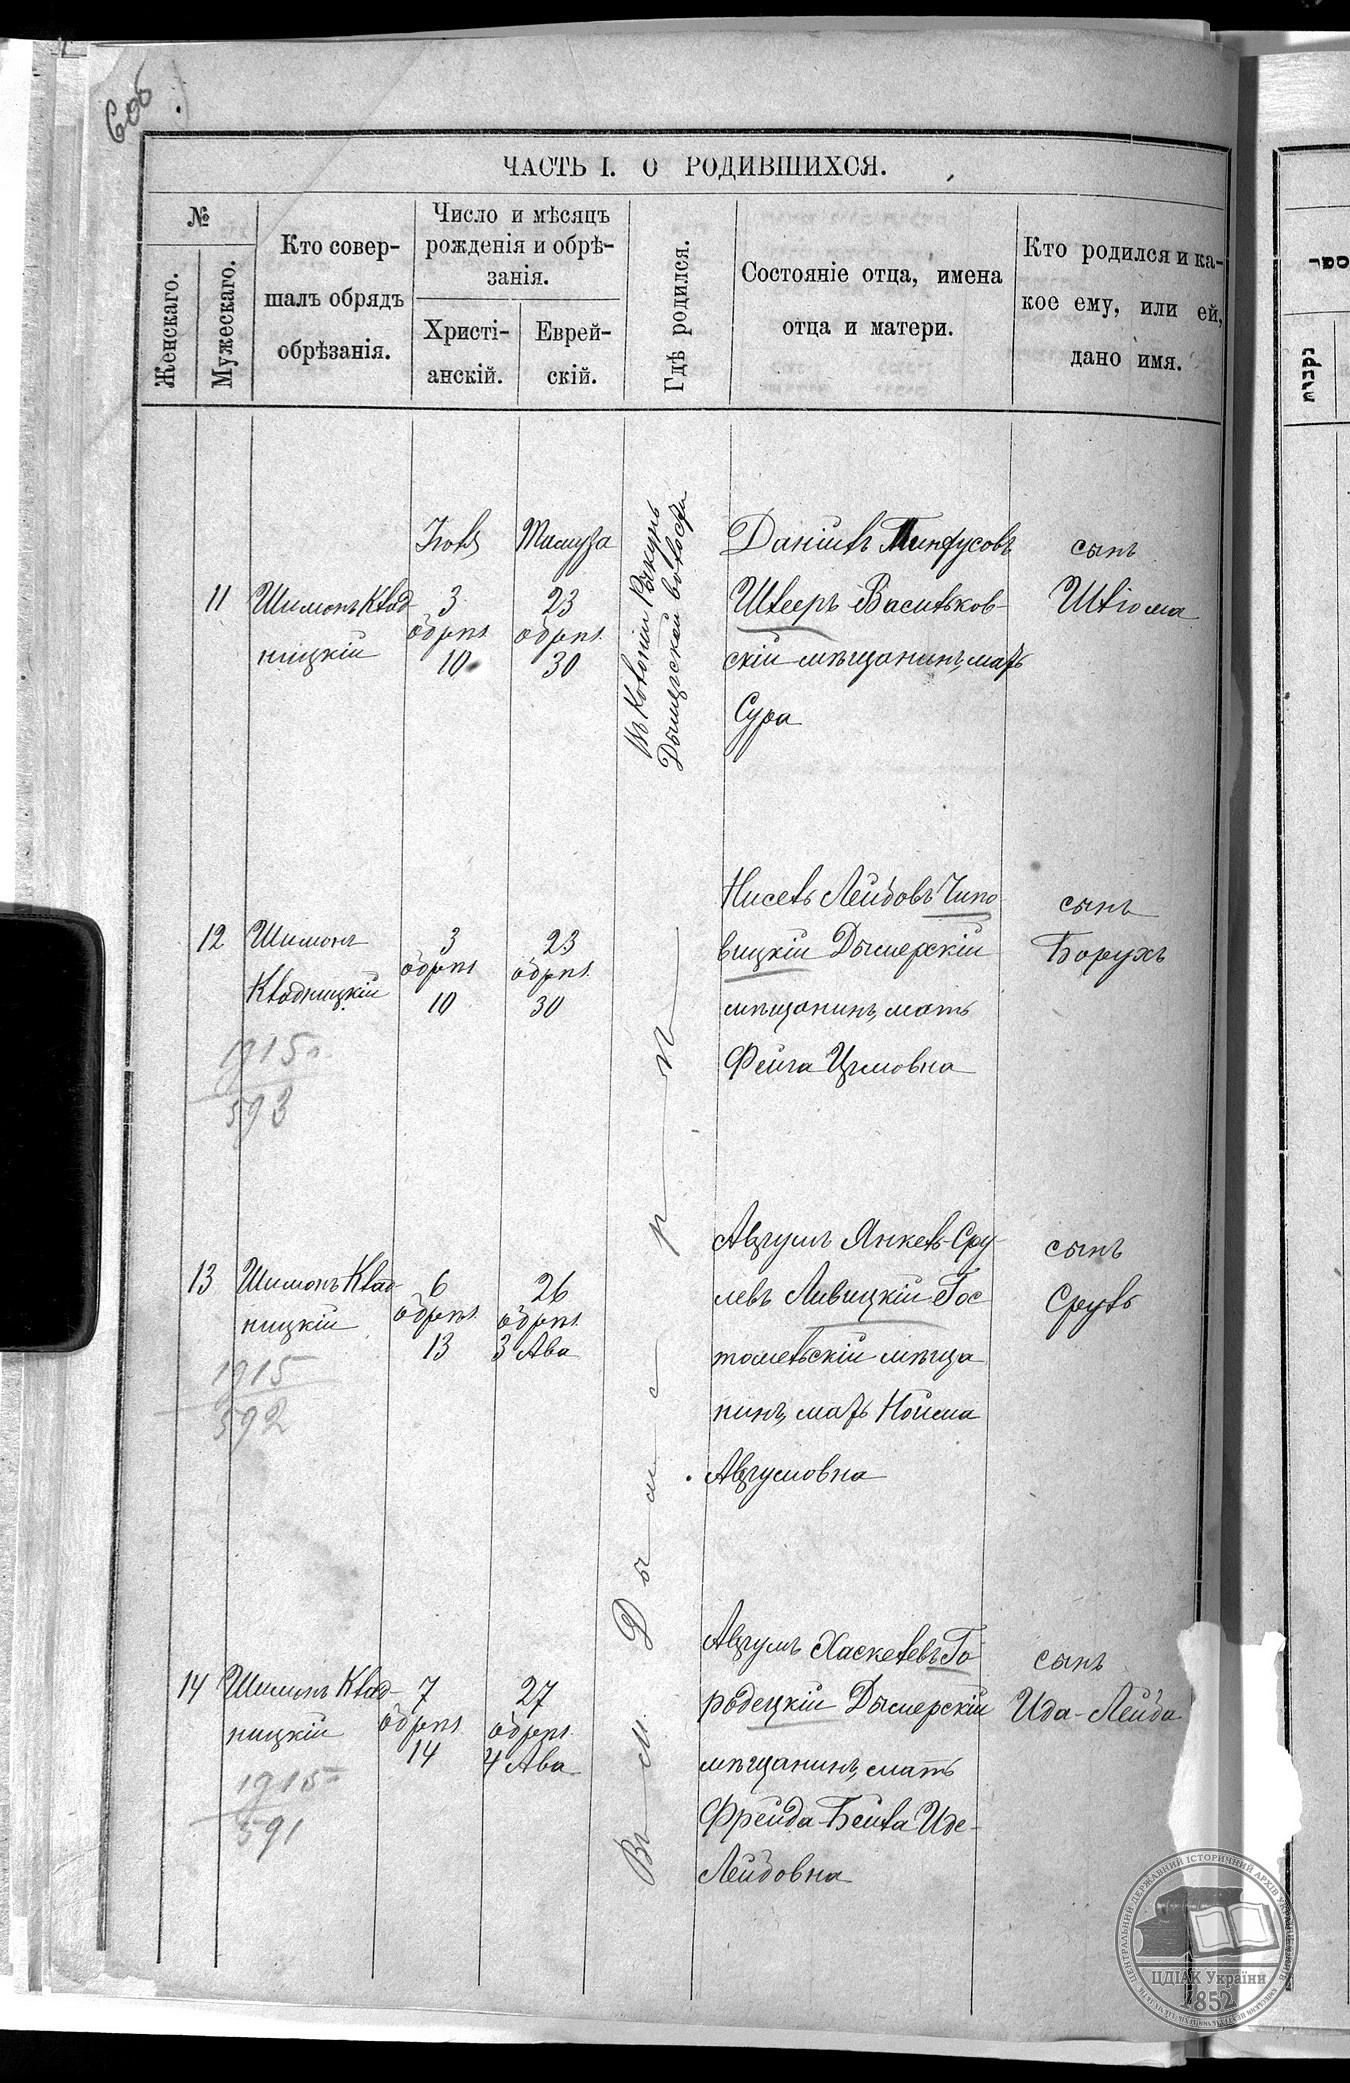 606
ЧАСТЬ I. О РОДИВШИХСЯ.
№
Женскаго.
Мужескаго.
Кто совер-
шалъ обрядъ
обрѣзанія.
Число и мѣсяцъ
рожденія и обрѣ-
занія.
Христі-
анскій.
Еврей-
скій.
Гдѣ родился.
Состояніе отца, имена
отца и матери.
Кто родился и ка-
кое ему, или ей,
дано имя.
11
Шимонъ Клад-
ницкій
Іюля
3
обрѣз.
10
Тамуза
23
обрѣз.
30
Въ Колоніи Рыкунь
Дымерской волости
Даніилъ Пинхусовъ
Штееръ Васильков-
скій мѣщанинъ, мать
Сура
сынъ
Шліома
12
Шимонъ
Кладницкій
1915
593
3
обрѣз.
10
23
обрѣз.
30
Нисель Лейбовъ Чипо
вицкій Дымерскій
мѣщанинъ, мать
Фейга Цимовна
сынъ
Борухъ
13
Шимонъ Клад-
ницкій
1915
592
6
обрѣз.
13
26
обрѣз.
3 Ава
Авгумъ Янкель-Сру-
левъ Ливицкій Гос
томельскій мѣща
нинъ, мать Нойма
Авгумовна
сынъ
Сруль
14
Шимонъ Клад-
ницкій
1915
591
7
обрѣз.
14
27
обрѣз.
4 Ава
Въ М. Дымерѣ
Авгумъ Хаскелевъ Го
родецкій Дымерскій
мѣщанинъ, мать
Фрейда-Бейла Иде-
Лейбовна
сынъ
Ида-Лейба
ЦЕНТРАЛЬНИЙ ДЕРЖАВНИЙ ІСТОРИЧНИЙ АРХІВ УКРАЇНИ
ЦДІАК України
1852